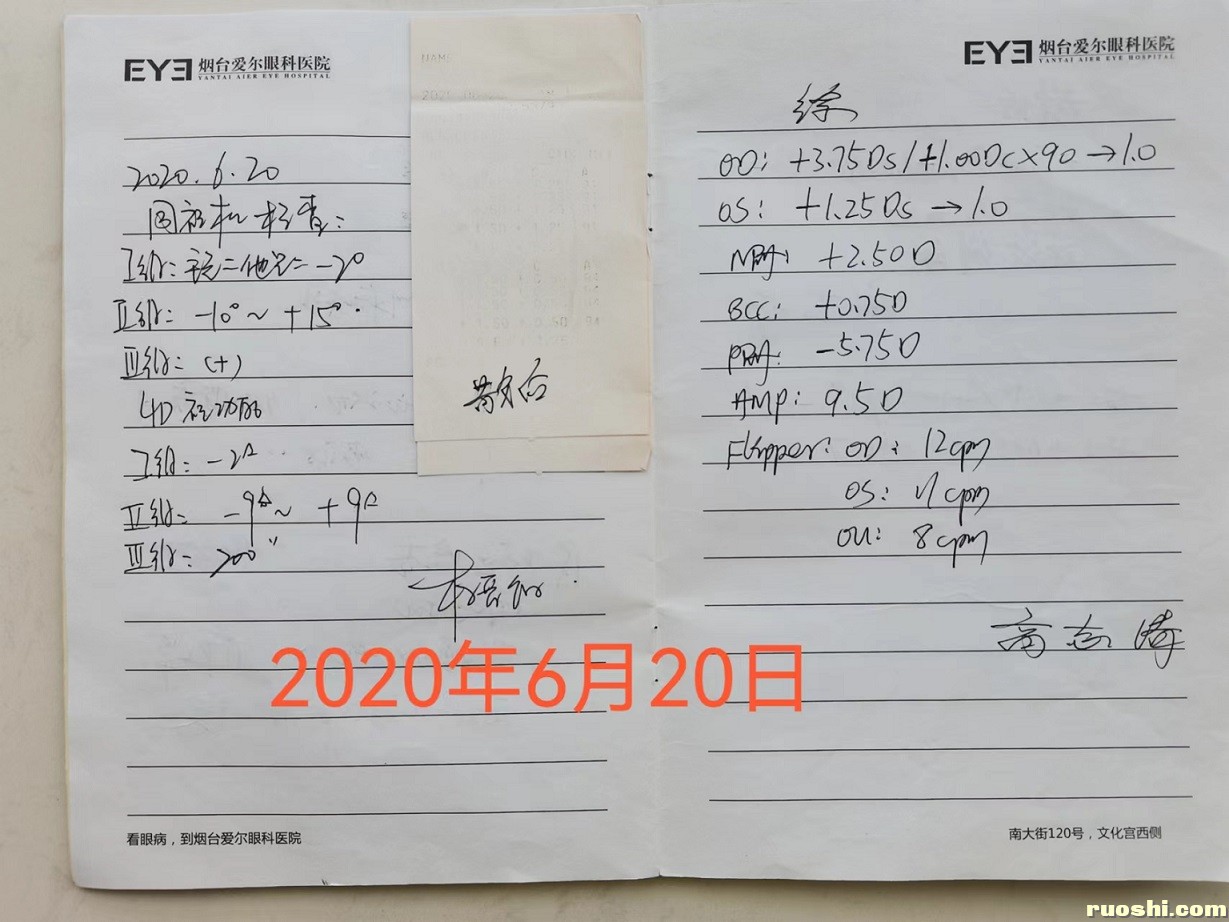 EYE 烟台爱尔眼科医院
YANTAI AIER EYE HOSPITAL
2020.6.20
同视机检查:
I级: 主觉=他觉=-2°
II级: -10°~+15°.
III级: (+)
4D视功能
I级: -2△
II级: -9△~+9△
III级: 200"
NAME
散瞳后
看眼病,到烟台爱尔眼科医院
EYE 烟台爱尔眼科医院
YANTAI AIER EYE HOSPITAL
徐
OD: +3.75Ds/+1.00Dc×90→1.0
OS: +1.25Ds→1.0
NRA: +2.50D
BCC: +0.75D
PRA: -5.75D
AMP: 9.5D
Flipper: OD: 12cpm
OS: 11cpm
OU: 8cpm
高志涛
南大街120号,文化宫西侧
2020年6月20日
ruoshi.com